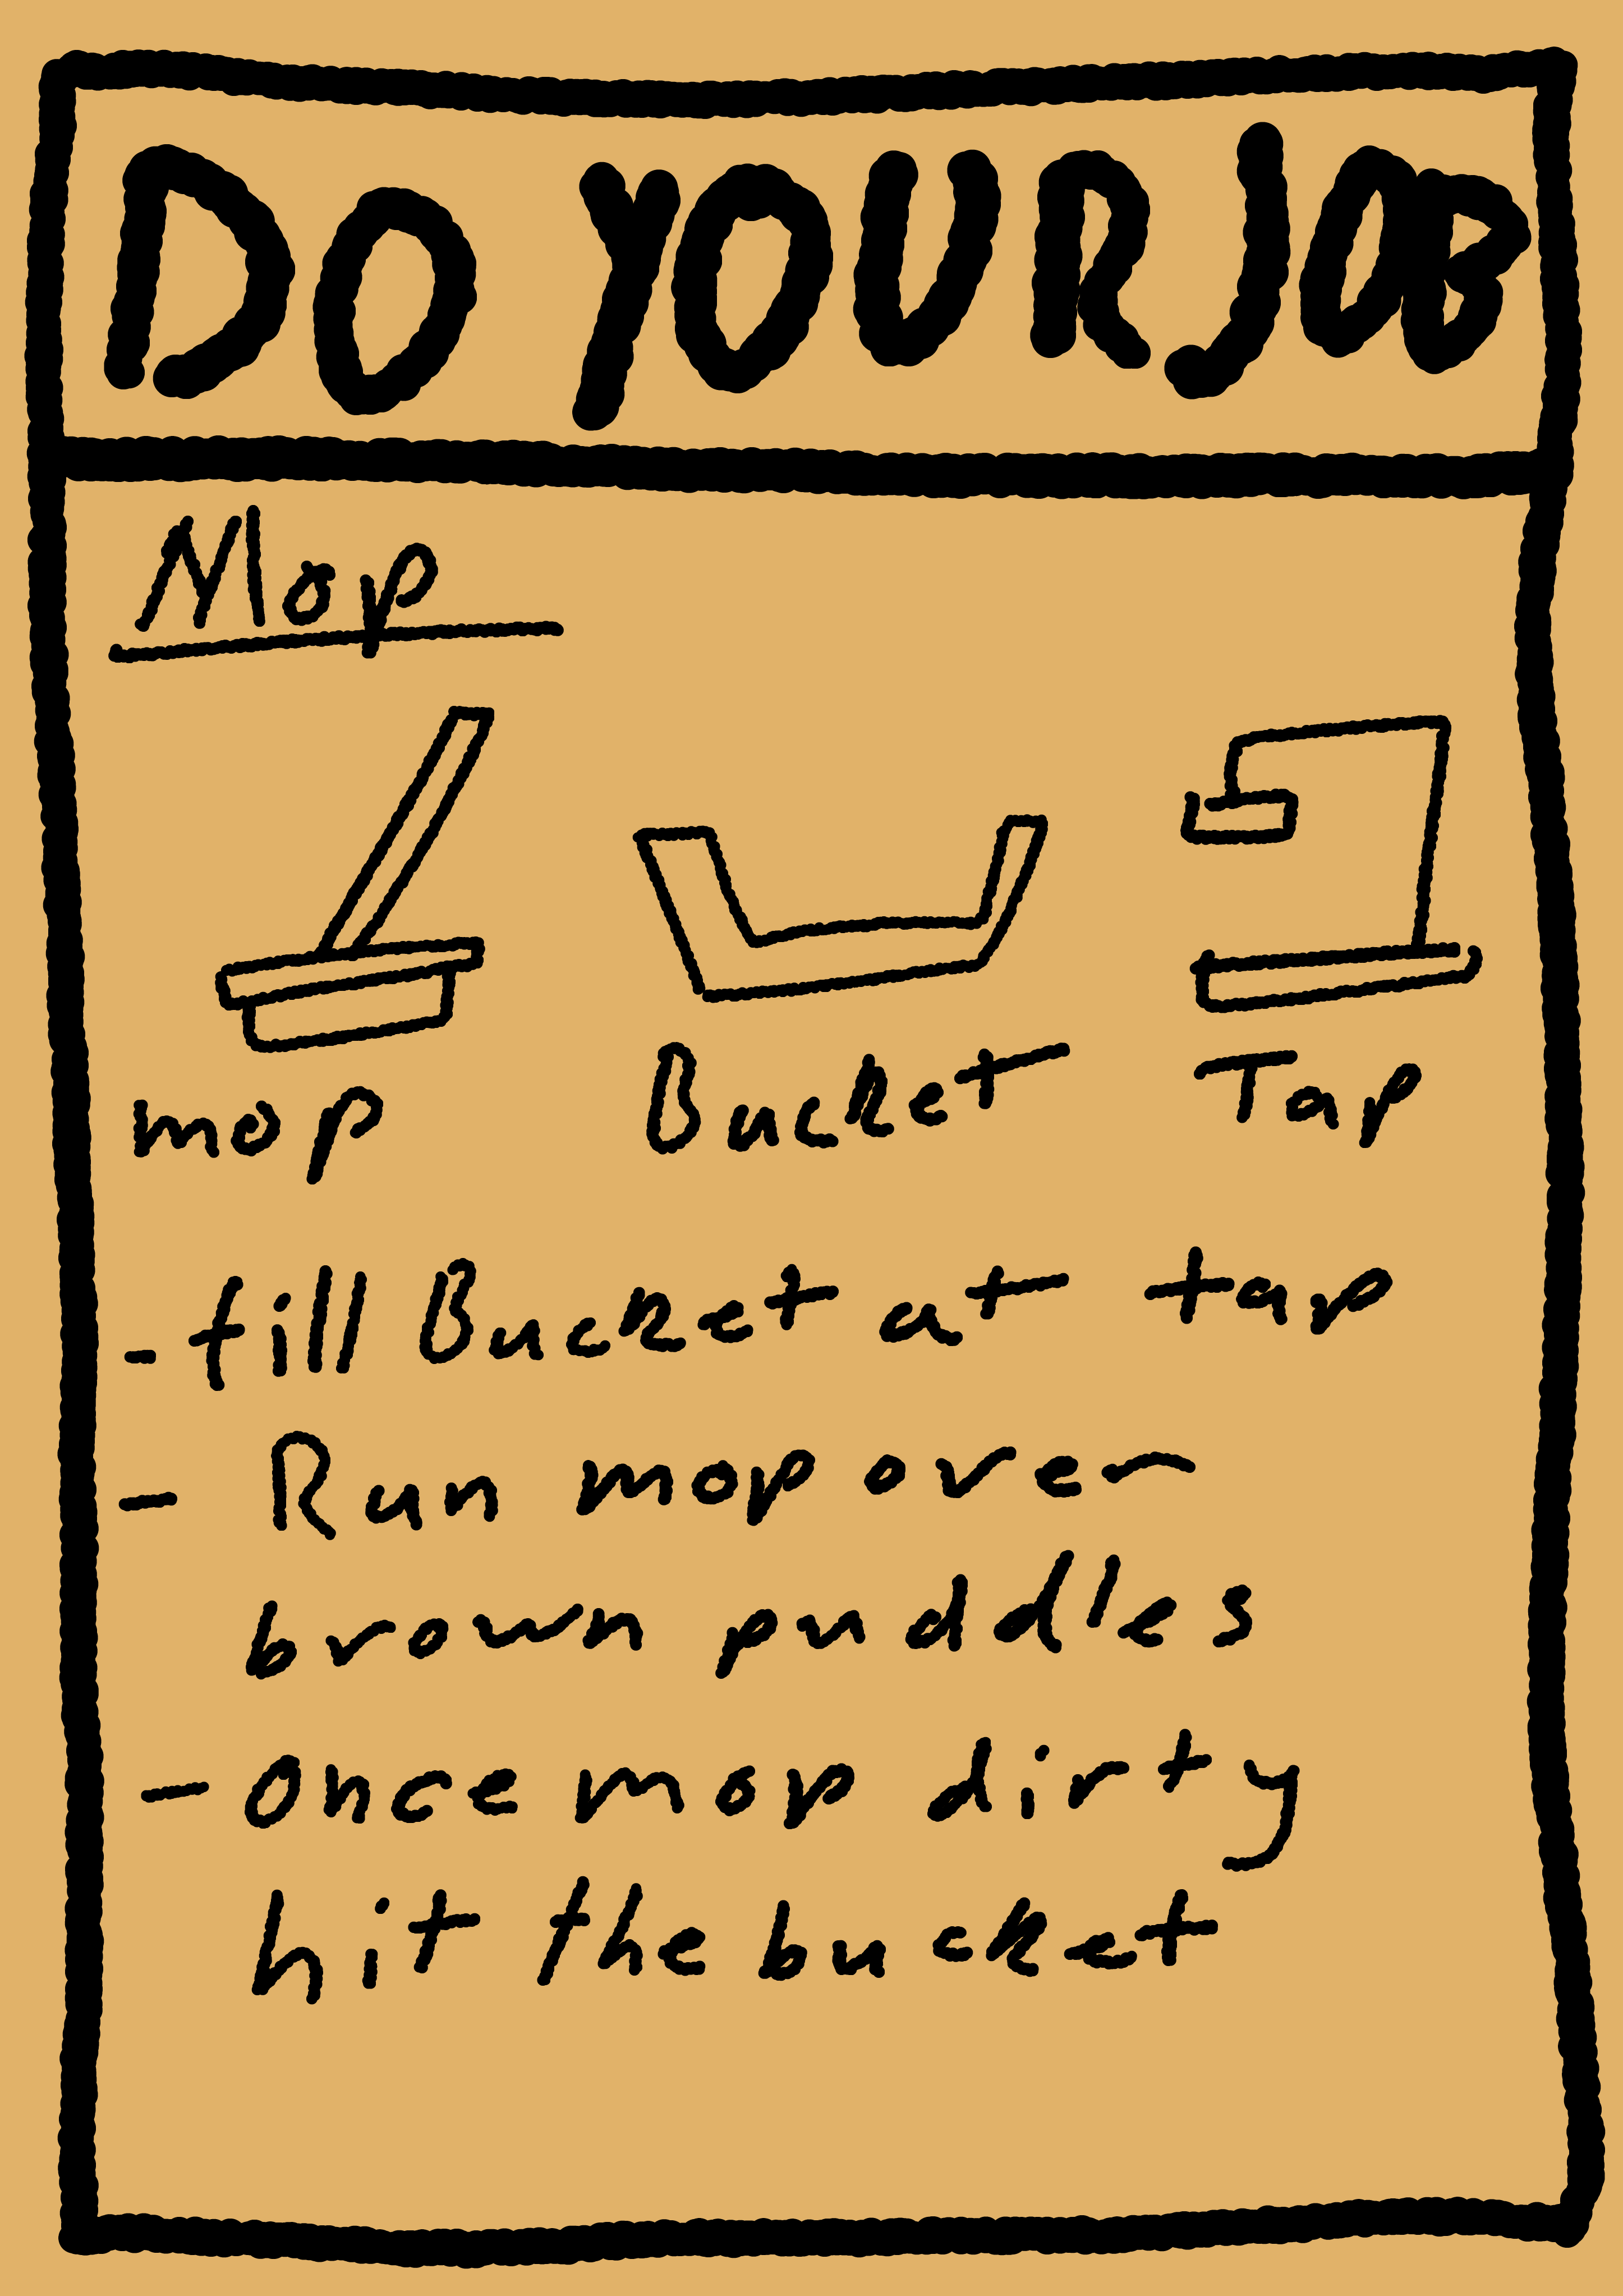 DO YOUR JOB
Mop
mop Bucket Tap
- fill Bucket at tap
- Run mop over
brown puddles
- once mop dirty
hit the bucket